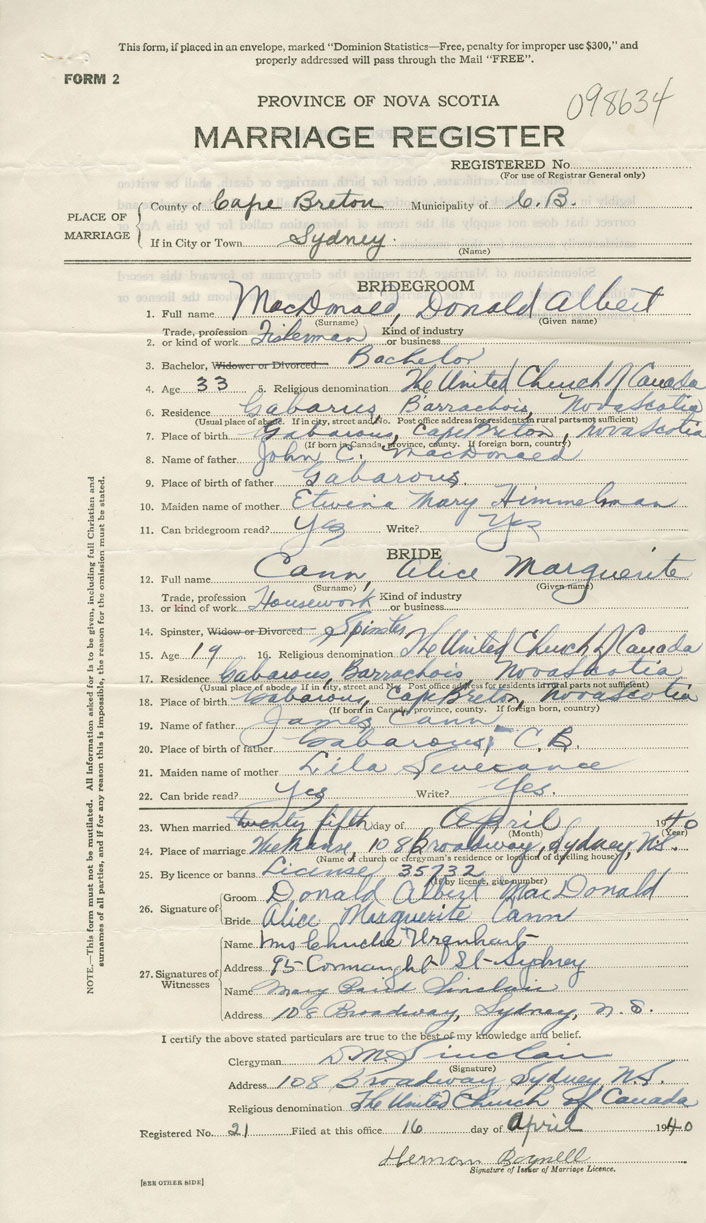 This form, if placed in an envelope, marked "Dominion Statistics—Free, penalty for improper use $300," and
properly addressed will pass through the Mail "FREE".
FORM 2
098634
PROVINCE OF NOVA SCOTIA
MARRIAGE REGISTER
REGISTERED No.
(For use of Registrar General only)
PLACE OF MARRIAGE
County of Cape Breton Municipality of C.B.
If in City or Town Sydney.
(Name)
BRIDEGROOM
1. Full name MacDonald, Donald Albert
(Surname) (Given name)
2. Trade, profession or kind of work Fisherman Kind of industry or business
3. Bachelor, Widower or Divorced Bachelor
4. Age 33 5. Religious denomination The United Church of Canada
6. Residence Gabarus, Barrachois, Nova Scotia
(Usual place of abode. If in city, street and No. Post office address for residents in rural parts not sufficient)
7. Place of birth Gabarous, Cape Briton, Nova Scotia
(If born in Canada, province, county. If foreign born, country)
8. Name of father John C. MacDonald
9. Place of birth of father Gabarous.
10. Maiden name of mother Etwina Mary Himmelman
11. Can bridegroom read? Yes Write? Yes
BRIDE
12. Full name Cann, Alice Marguerite
(Surname) (Given name)
13. Trade, profession or kind of work Housework Kind of industry or business
14. Spinster, Widow or Divorced Spinster
15. Age 19 16. Religious denomination The United Church of Canada
17. Residence Gabarous, Barrachois Nova Scotia
(Usual place of abode. If in city, street and No. Post office address for residents in rural parts not sufficient)
18. Place of birth Gabarous, Cape Breton, Nova Scotia
(If born in Canada, province, county. If foreign born, country)
19. Name of father James Cann
20. Place of birth of father Gabarous, C.B.
21. Maiden name of mother Lila Severance
22. Can bride read? Yes Write? Yes.
23. When married twenty fifth day of April 1940
(Month) (Year)
24. Place of marriage The Manse, 108 Broadway, Sydney, N.S.
(Name of church or clergyman's residence or location of dwelling house)
25. By licence or banns License 35732
(If by licence, give number)
26. Signature of
Groom Donald Albert MacDonald
Bride Alice Marguerite Cann
27. Signatures of Witnesses
Name Mrs Chuckie Urquhart
Address 95 Connaught St-Sydney
Name Mary Baird Sinclair
Address 108 Broadway, Sydney, N.S.
I certify the above stated particulars are true to the best of my knowledge and belief.
Clergyman D M Sinclair
(Signature)
Address 108 Broadway Sydney N.S.
Religious denomination The United Church of Canada
Registered No. 21 Filed at this office 16 day of April 1940
Herman
Signature of Issuer of Marriage Licence.
[SEE OTHER SIDE]
NOTE.—This form must not be mutilated. All information asked for is to be given, including full Christian and
surnames of all parties, and if for any reason this is impossible, the reason for the omission must be stated.